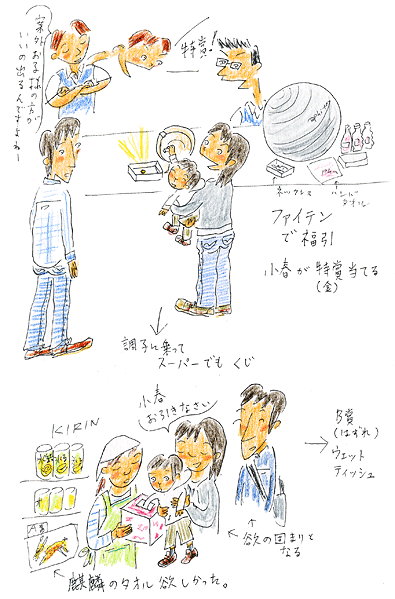 案外お子様の方が
いいの出るんですよねー
特賞!
ネックレス
ハンド
タオル
ファイテン
で福引
小春が特賞当てる
(金)
調子に乗って
スーパーでも くじ
小春
お引きなさい
KIRIN
A賞
B賞
(はずれ)
ウェット
ティッシュ
欲の固まりと
なる
麒麟のタオル欲しかった。